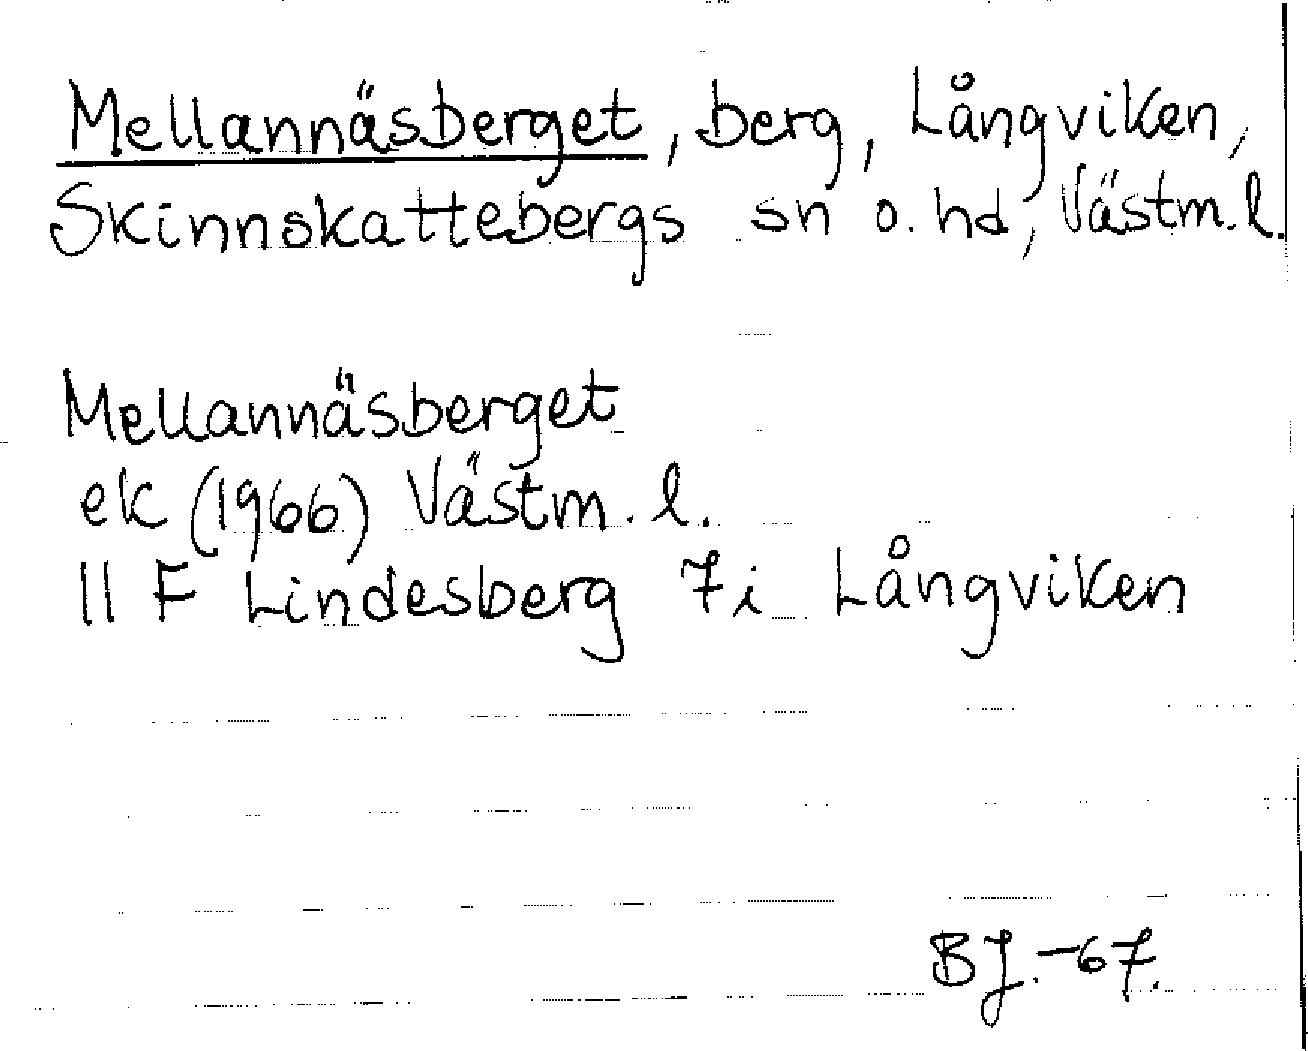 Mellannäsberget, berg, Långviken,
Skinnskattebergs sn o. hd, Västm. l.
Mellannäsberget
ek (1966) Västm. l.
11 F Lindesberg 7i Långviken
BJ.-67.